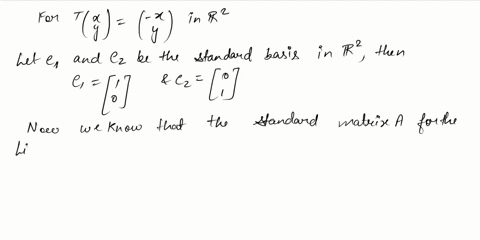 For T(x y) = (-x y) in ℝ²
Let e₁ and e₂ be the standard basis in ℝ², then
e₁ = [1 0] & e₂ = [0 1]
Now we know that the standard matrix A for the
Li